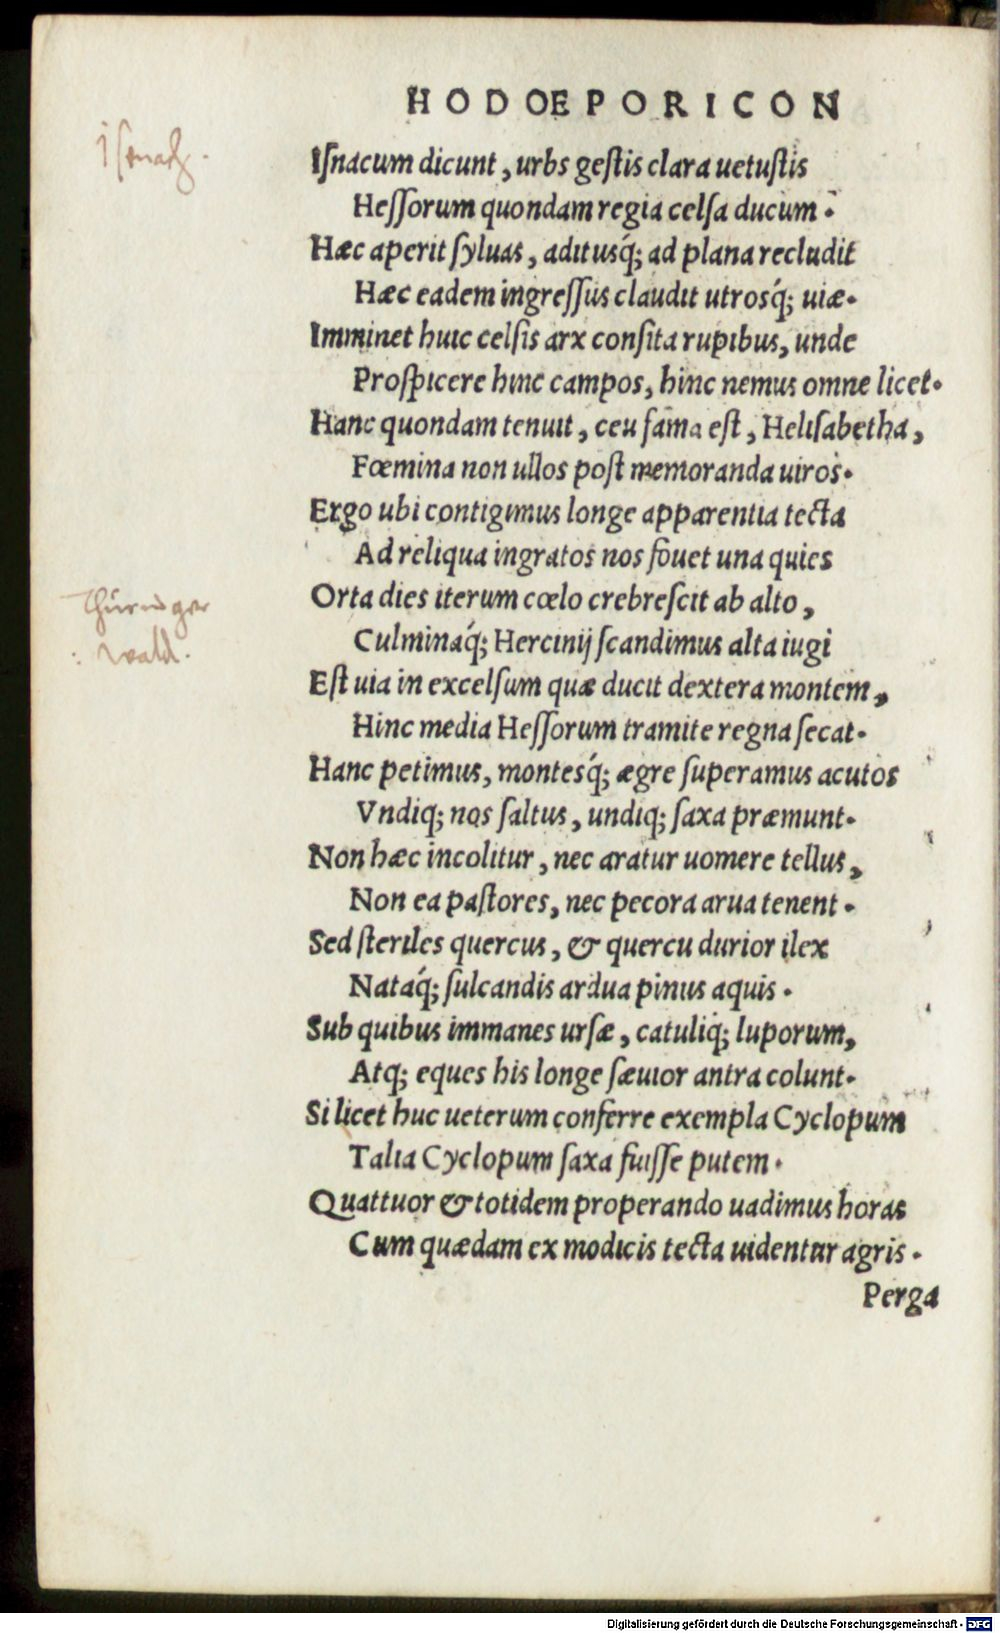 HODOEPORICON
Isenach.
Iſnacum dicunt, urbs geſtis clara uetuſtis
Heſſorum quondam regia celſa ducum.
Hæc aperit ſyluas, aditusq́; ad plana recludit
Hæc eadem ingreſſus claudit utrosq́; uiæ.
Imminet huic celſis arx conſita rupibus, unde
Proſpicere hinc campos, hinc nemus omne licet.
Hanc quondam tenuit, ceu fama eſt, Heliſabetha,
Fœmina non ullos poſt memoranda uiros.
Ergo ubi contigimus longe apparentia tecta
Ad reliqua ingratos nos fouet una quies
Orta dies iterum cœlo crebreſcit ab alto,
Thüringer
Culminaq́; Hercinij ſcandimus alta iugi
wald.
Eſt uia in excelſum quæ ducit dextera montem,
Hinc media Heſſorum tramite regna ſecat.
Hanc petimus, montesq́; ægre ſuperamus acutos
Vndiq; nos ſaltus, undiq; ſaxa præmunt.
Non hæc incolitur, nec aratur uomere tellus,
Non ea paſtores, nec pecora arua tenent.
Sed ſteriles quercus, & quercu durior ilex
Nataq́; ſulcandis ardua pinus aquis.
Sub quibus immanes urſæ, catuliq; luporum,
Atq; eques his longe ſæuior antra colunt.
Si licet huc ueterum conferre exempla Cyclopum
Talia Cyclopum ſaxa fuiſſe putem.
Quattuor & totidem properando uadimus horas
Cum quædam ex modicis tecta uidentur agris.
Perga
Digitalisierung gefördert durch die Deutsche Forschungsgemeinschaft - DFG